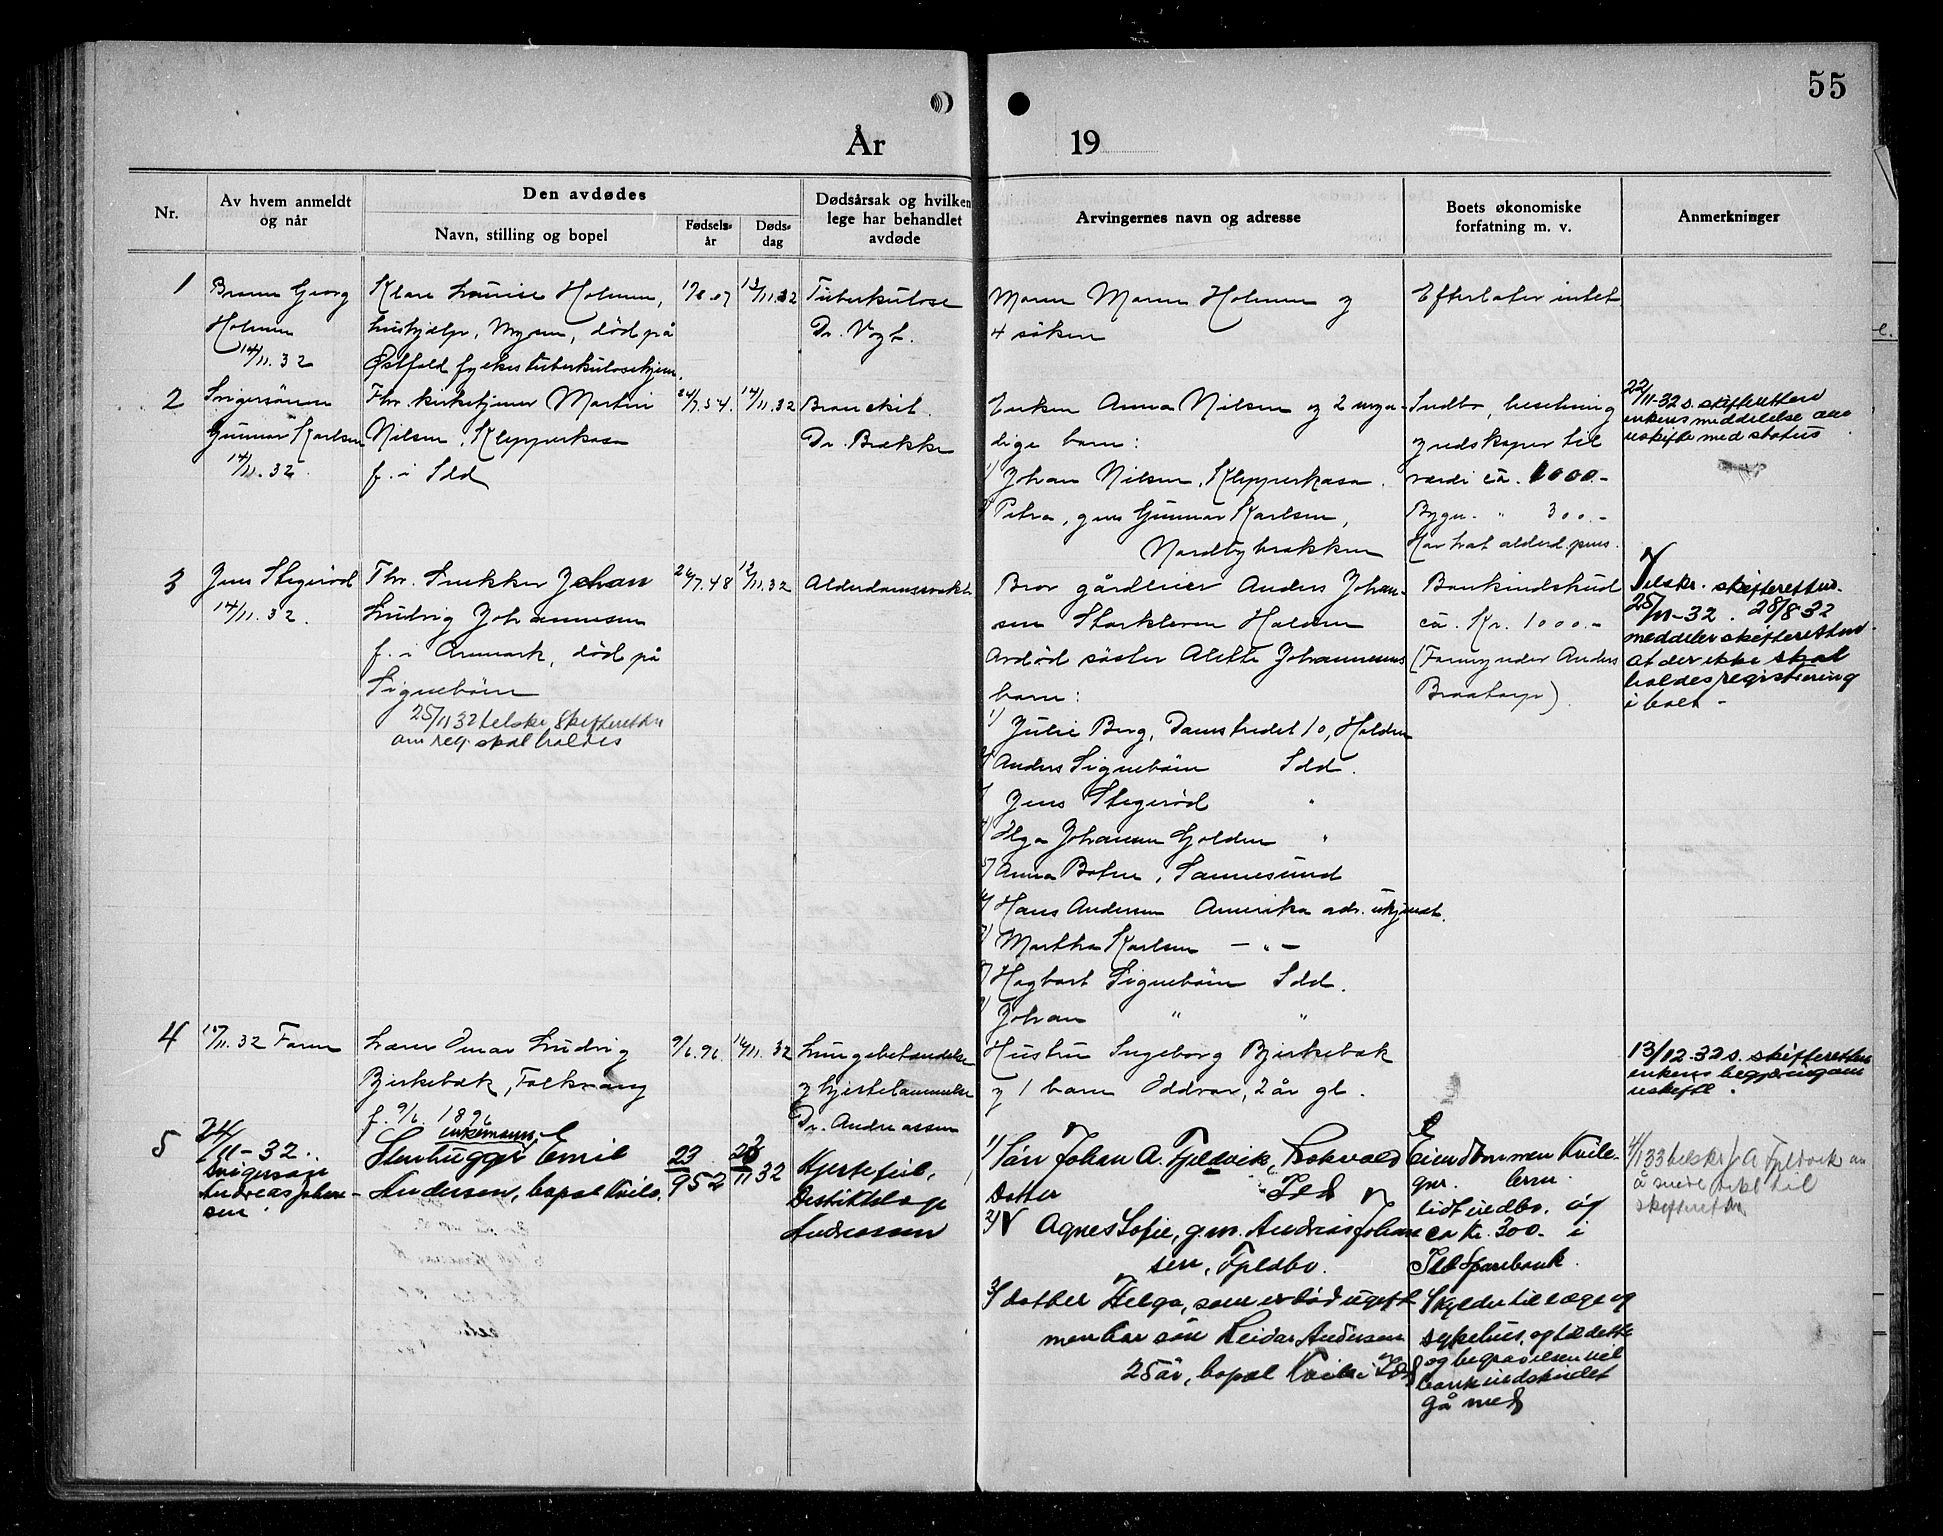 55
År 19
Nr.
Av hvem anmeldt
og når
Den avdødes
Navn, stilling og bopel
Fødsels-
år
Døds-
dag
Dødsårsak og hvilken
lege har behandlet
avdøde
Arvingernes navn og adresse
Boets økonomiske
forfatning m. v.
Anmerkninger
1
Broren Georg
Holmen
14/11.32
Klara Louise Holmen,
hushjelp, Mysen, død på
Østfold fylkes tuberkulosehjem.
13/11.32
Tuberkulose
Dr. Vogt.
Moren Maren Holmen og
4 søsken
Efterlater intet
2
Svigersønnen
Gunnar Karlsen
14/11.32
Fhv. kirketjener Martin
Nilsen, Klepperkasa
f. i Idd
24/7.54.
14/11.32
Bronckit
Dr. Brække
Enken Anna Nilsen og 2 myn-
dige barn:
1) Johan Nilsen, Klepperkasa.
2) Petra, gm Gunnar Karlsen,
Nordbybrækken
Indbo, besetning
redskaper til
værdi ca. 1000.-
Bygn. " 300.-
Har hat alderd.pens.
22/11-32 s. skifteretten
enkens meddelelse om
uskifte med status
3
Jens Stegerød
14/11.32.
Fhv. Snekker Johan
Ludvig Johannesen
f. i Aremark, død på
Signebøen
25/11 32 telskr skifteretten
om reg. skal holdes
26/7.48
12/11.32
Alderdomssvakh.
Bror gårdeier Anders Johan-
sen Storkleven Halden
Avdød søster Alette Johannesens
barn:
1) Julie Berg, Damstredet 10, Halden
2) Anders Signebøen Idd.
3) Jens Stegerød "
4) Olga Johansen Golden "
5) Anna Boten, Sannesund
6) Hans Andersen Amerika adr. ukjendt.
7) Martha Karlsen — " —
8) Hagbart Signebøen Idd.
9) Johan " "
Bankindskud
ca. Kr. 1000.-
(Formynder Anders
Braatorp).
Telskr. skifteretten
25/11-32. 28/8 32
meddeler skifteretten
at der ikke skal
holdes registrering
i boet -
4
Lærer Omar Ludvig
Birkebæk, Folkvang
f. 9/6. 1896
9/6.96.
16/11.32
Lungebetændelse
og hjertelammelse
Dr. Andreassen
Hustru Ingeborg Bjirkebæk
og 1 barn Oddvar, 2 år gl.
13/12.32 s. skifteretten
enkens begjæring om
uskifte.
5
24/11-32.
svigersøn
Andreas Johan-
sen.
enkemann,
Stenhugger Emil
Andersen, bopæl Kvile.
23/9 52
23/11 32
Hjertefeil,
Distriktslæge
Andreassen
1/ Søn Johan A. Fjeldvik, Lokvold
Idd
Datter
2/ Agnes Sofie, g.m. Andreas Johan
sen, Fjeldbo.
3/ datter Helga, som er død ugift
men har søn Reidar Andersen
25 år, bopæl Kvile i Idd
Eiendommen Kvile.
lidt indbo. og
ca kr. 300.- i
Idd Sparebank.
Skylder til læge og
sykehus, og til dette
og begravelsen vil
bankindskudet
gå med
4/1 33 telskr J. A Fjeldvik om
skifteretten